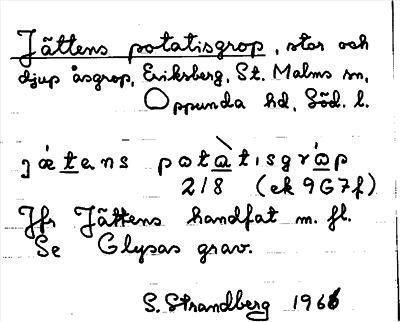 Jättens potatisgrop, stor och
djup åsgrop, Eriksberg, St. Malms sn,
Oppunda hd, Söd. l.
jǽtens potàtisgrɔ́p
218 (ek 9G7f)
Jfr Jättens handfat m. fl.
Se Glysas grav.
S. Strandberg 1966